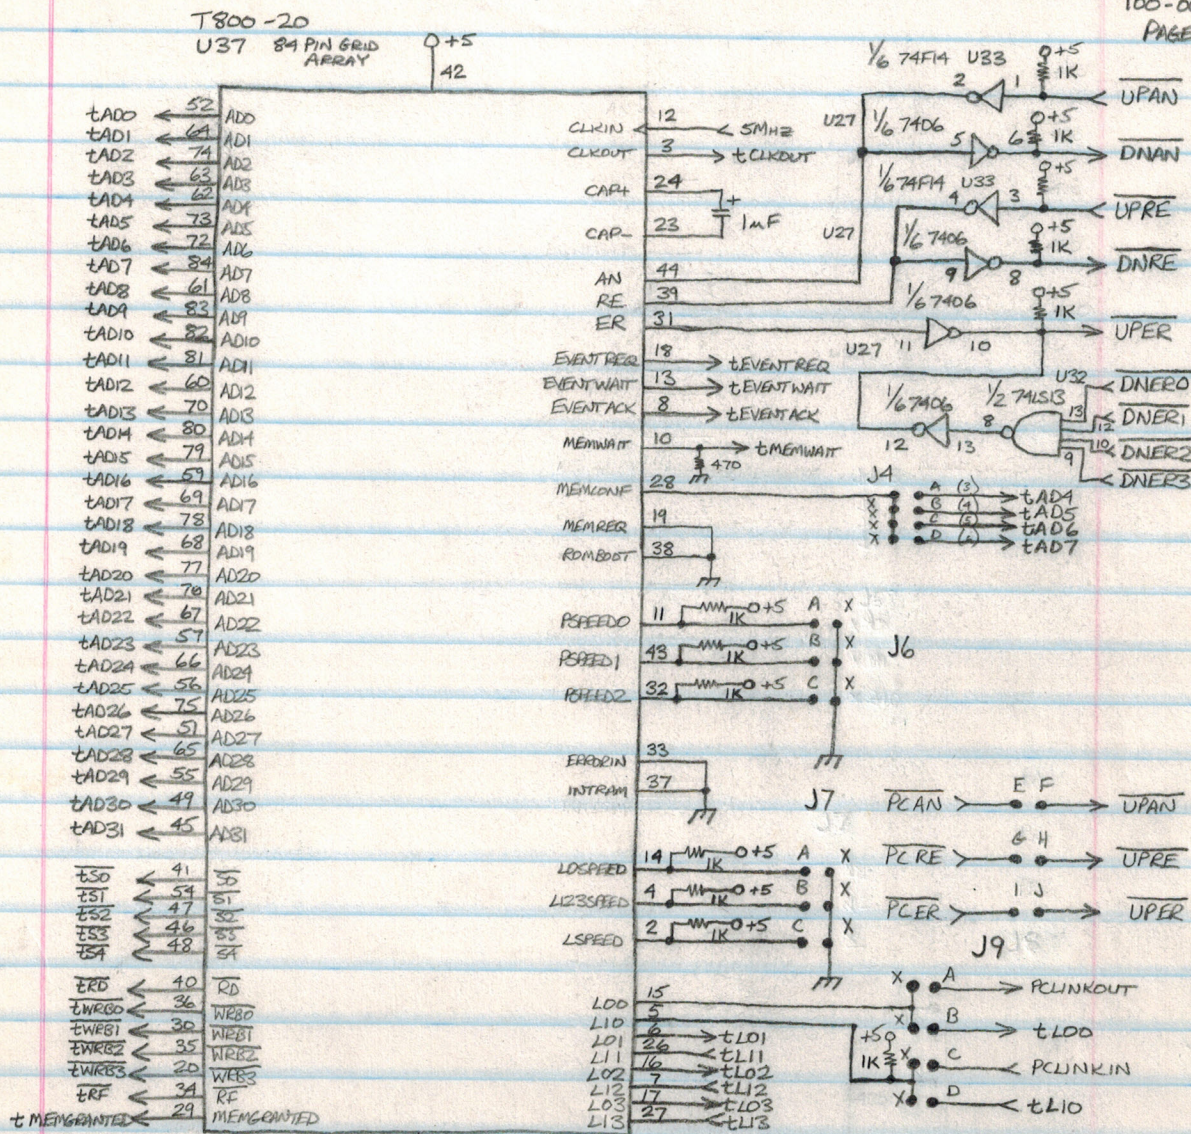 T800-20
U37 84 PIN GRID
ARRAY
+5
42
100-00
PAGE
tAD0 52 AD0
tAD1 64 AD1
tAD2 74 AD2
tAD3 63 AD3
tAD4 62 AD4
tAD5 73 AD5
tAD6 72 AD6
tAD7 84 AD7
tAD8 61 AD8
tAD9 83 AD9
tAD10 82 AD10
tAD11 81 AD11
tAD12 60 AD12
tAD13 70 AD13
tAD14 80 AD14
tAD15 79 AD15
tAD16 59 AD16
tAD17 69 AD17
tAD18 78 AD18
tAD19 68 AD19
tAD20 77 AD20
tAD21 76 AD21
tAD22 67 AD22
tAD23 57 AD23
tAD24 66 AD24
tAD25 56 AD25
tAD26 75 AD26
tAD27 51 AD27
tAD28 65 AD28
tAD29 55 AD29
tAD30 49 AD30
tAD31 45 AD31
tS0 41 S0
tS1 54 S1
tS2 47 S2
tS3 46 S3
tS4 48 S4
tRD 40 RD
tWRB0 36 WRB0
tWRB1 30 WRB1
tWRB2 35 WRB2
tWRB3 20 WRB3
tRF 34 RF
tMEMGRANTED 29 MEMGRANTED
CLKIN 12 5MHZ
CLKOUT 3 tCLKOUT
CAP+ 24
+
1mF
CAP- 23
AN 44
RE 39
ER 31
EVENTREQ 18 tEVENTREQ
EVENTWAIT 13 tEVENTWAIT
EVENTACK 8 tEVENTACK
MEMWAIT 10 tMEMWAIT
470
MEMCONF 28
MEMREQ 19
ROMBOOT 38
PSPEED0 11 1K +5 A X
PSPEED1 43 1K +5 B X
PSPEED2 32 1K +5 C X
J6
ERRORIN 33
INTRAM 37
L0SPEED 14 1K +5 A X
L123SPEED 4 1K +5 B X
LSPEED 2 1K +5 C X
LO0 15
LI0 5
LO1 6 tLO1
LI1 26 tLI1
LO2 16 tLO2
LI2 7 tLI2
LO3 17 tLO3
LI3 27 tLI3
1/6 74F14 U33 +5
2 1 1K UPAN
U27 1/6 7406 +5
5 6 1K DNAN
1/6 74F14 U33 +5
4 3 UPRE
U27 1/6 7406 +5
9 8 1K DNRE
1/6 7406 +5
1K
U27 11 10 UPER
1/6 7406 1/2 74LS13 U32
12 13 8
13 DNER0
12 DNER1
10 DNER2
9 DNER3
J4
X A (3) tAD4
X B (4) tAD5
X C (5) tAD6
X D (6) tAD7
J7
PCAN E F UPAN
PCRE G H UPRE
PCER I J UPER
J9
X A PCLINKOUT
X B tLO0
+5
1K
X C PCLINKIN
X D tLI0